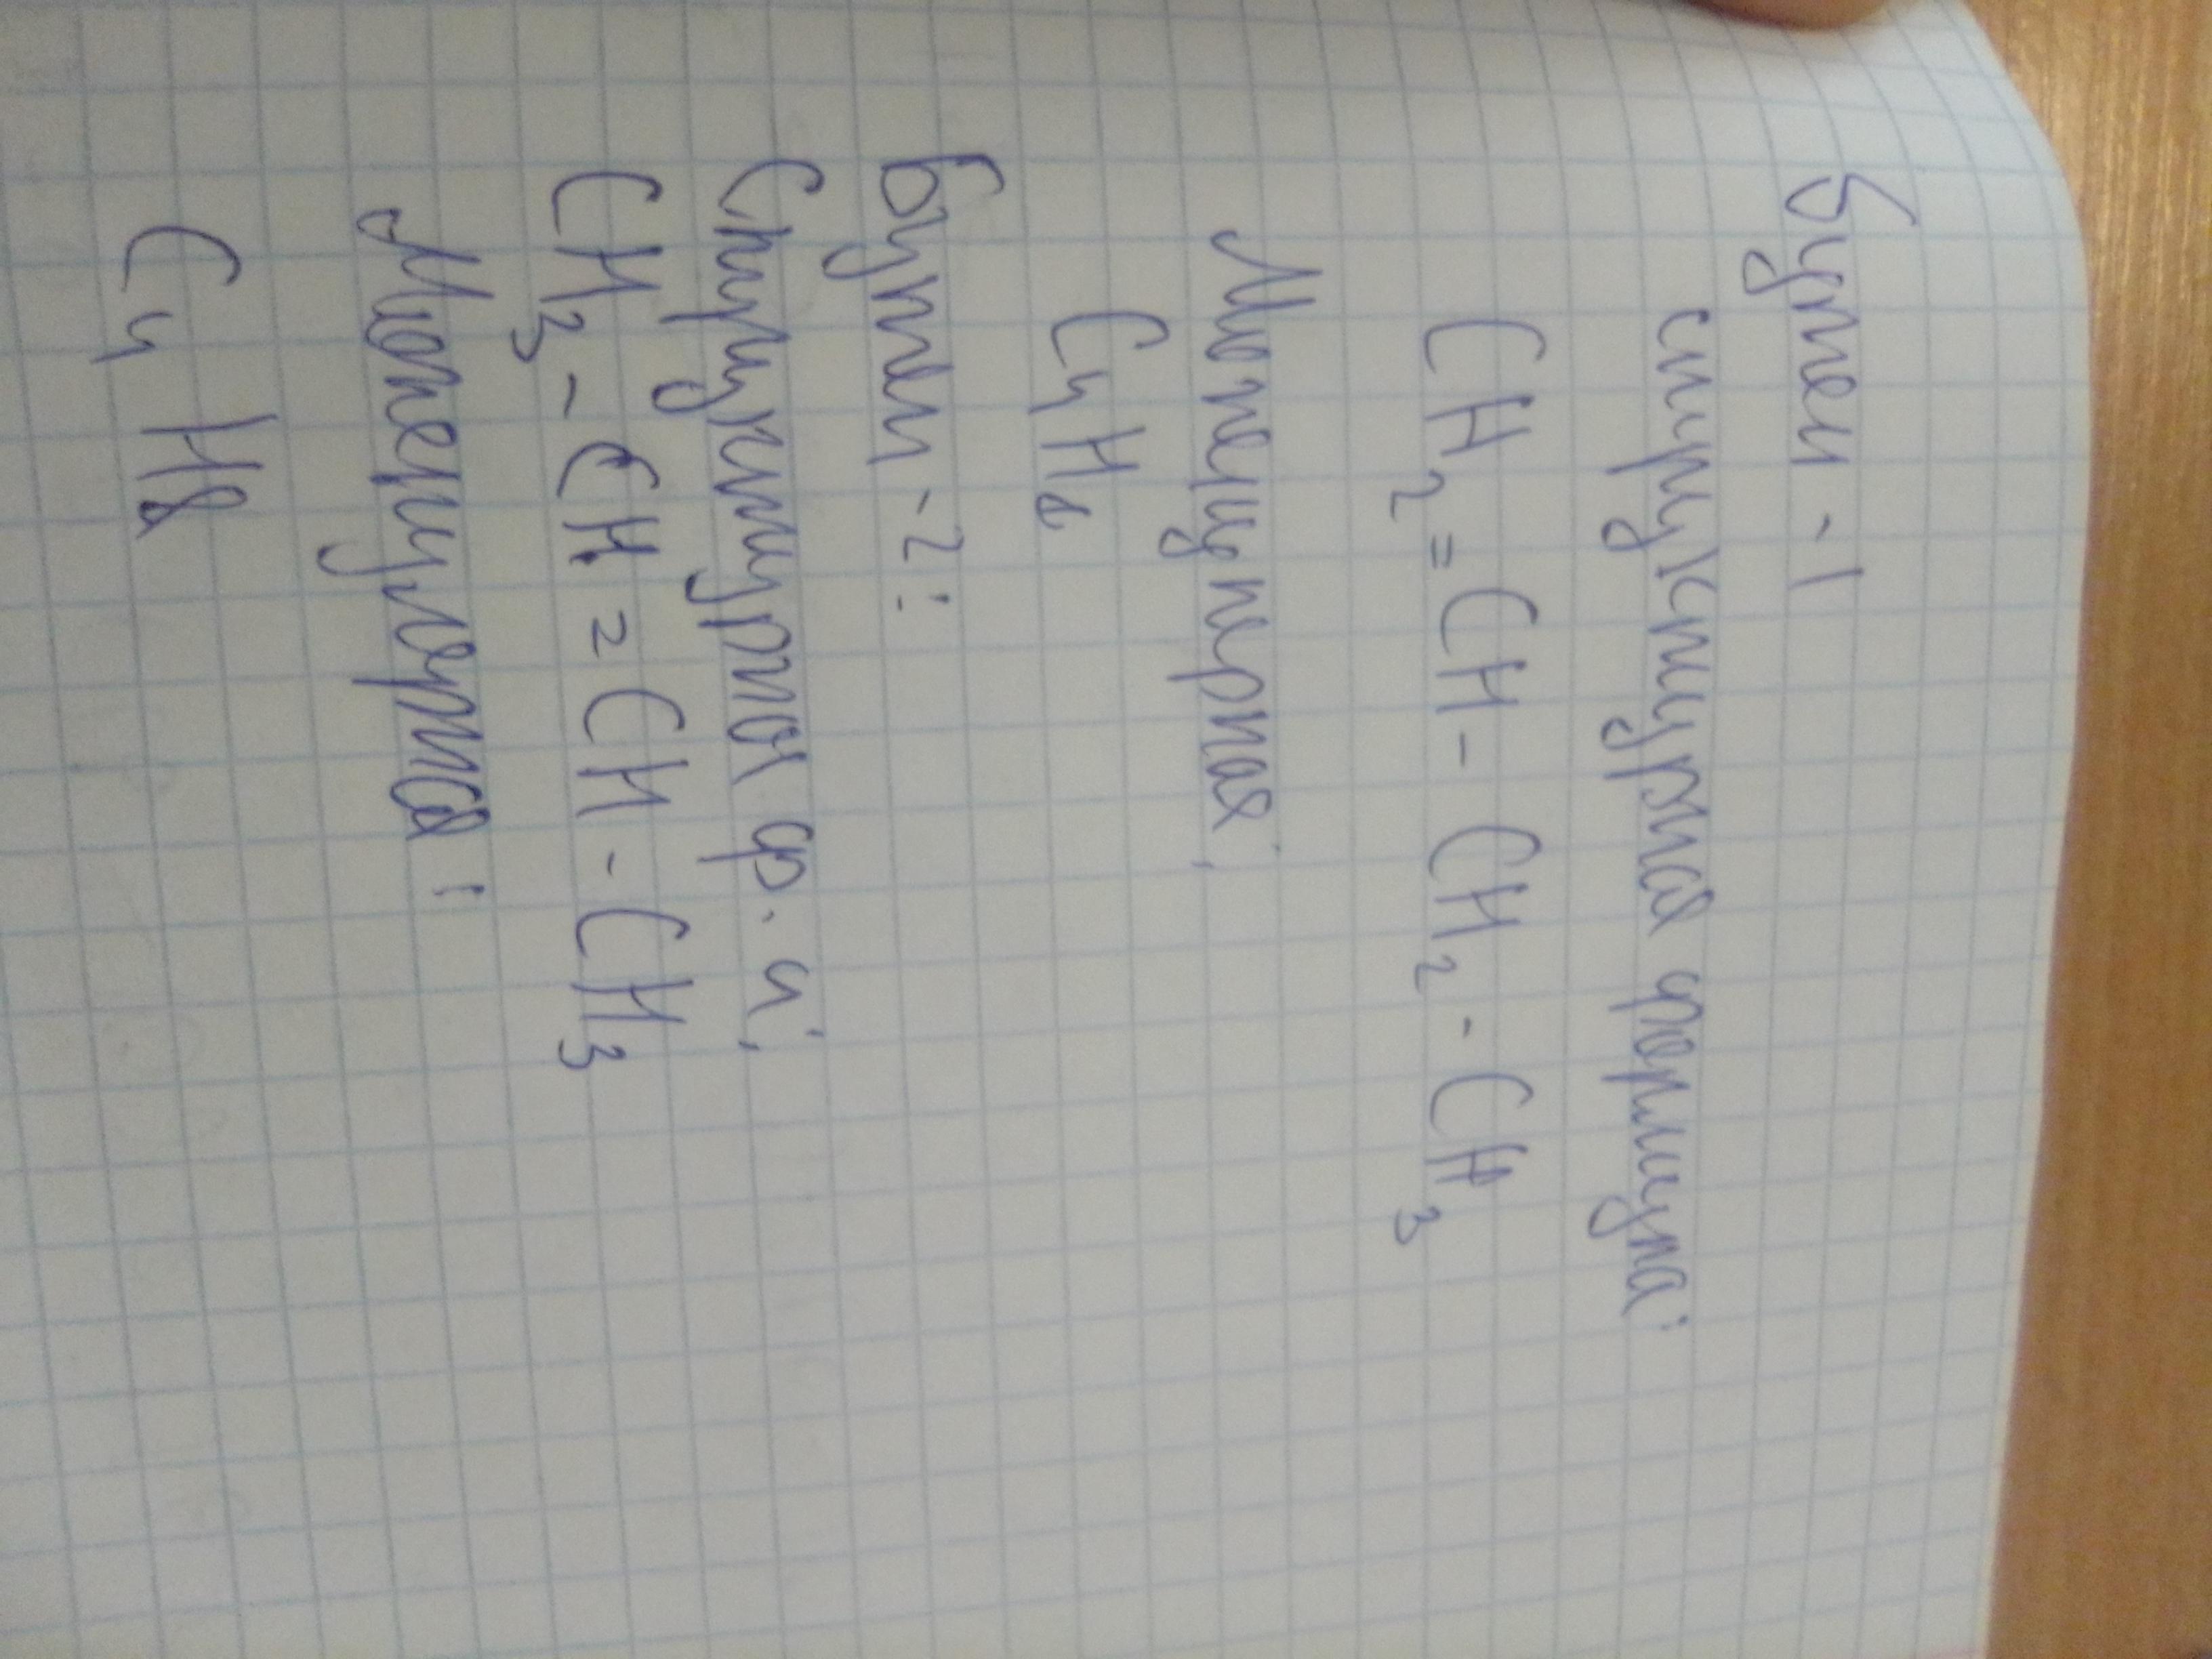 Бутен - 1
структурная формула:
CH2=CH-CH2-CH3
Молекулярная:
C4H8
Бутен-2:
Структурная ф.л:
CH3-CH=CH-CH3
Молекулярная:
C4H8